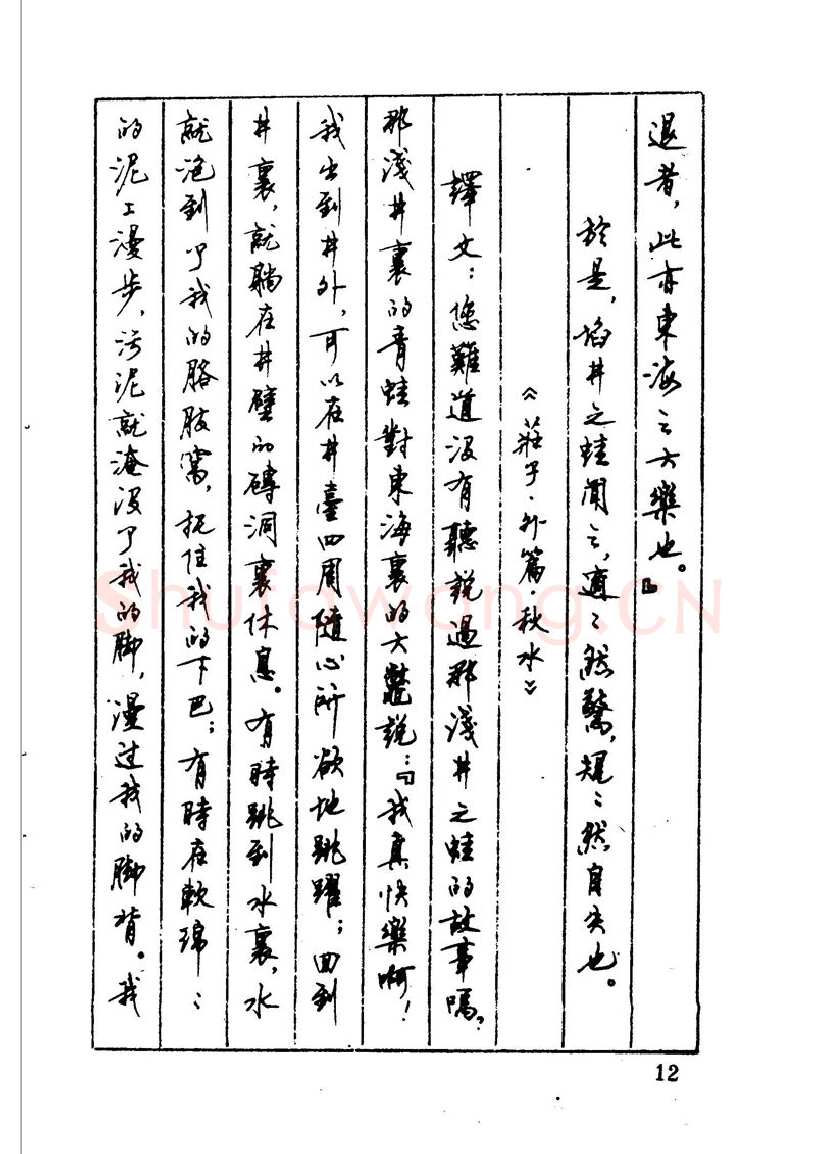 退者，此亦東海之大樂也。』
於是，埳井之蛙聞之，適〻然驚，規〻然自失也。
《莊子·外篇秋水》
譯文：您難道没有聽説過那淺井之蛙的故事嗎？
那淺井裏的青蛙對東海裏的大鼈説：『我真快樂啊！
我出到井外，可以在井臺四周隨心所欲地跳躍；回到
井裏，就躺在井壁的磚洞裏休息。有時跳到水裏，水
就泡到了我的胳肢窩，托住我的下巴；有時在軟綿〻
的泥上漫步，污泥就淹没了我的脚，漫过我的脚背。我
12
Shufawang.CN